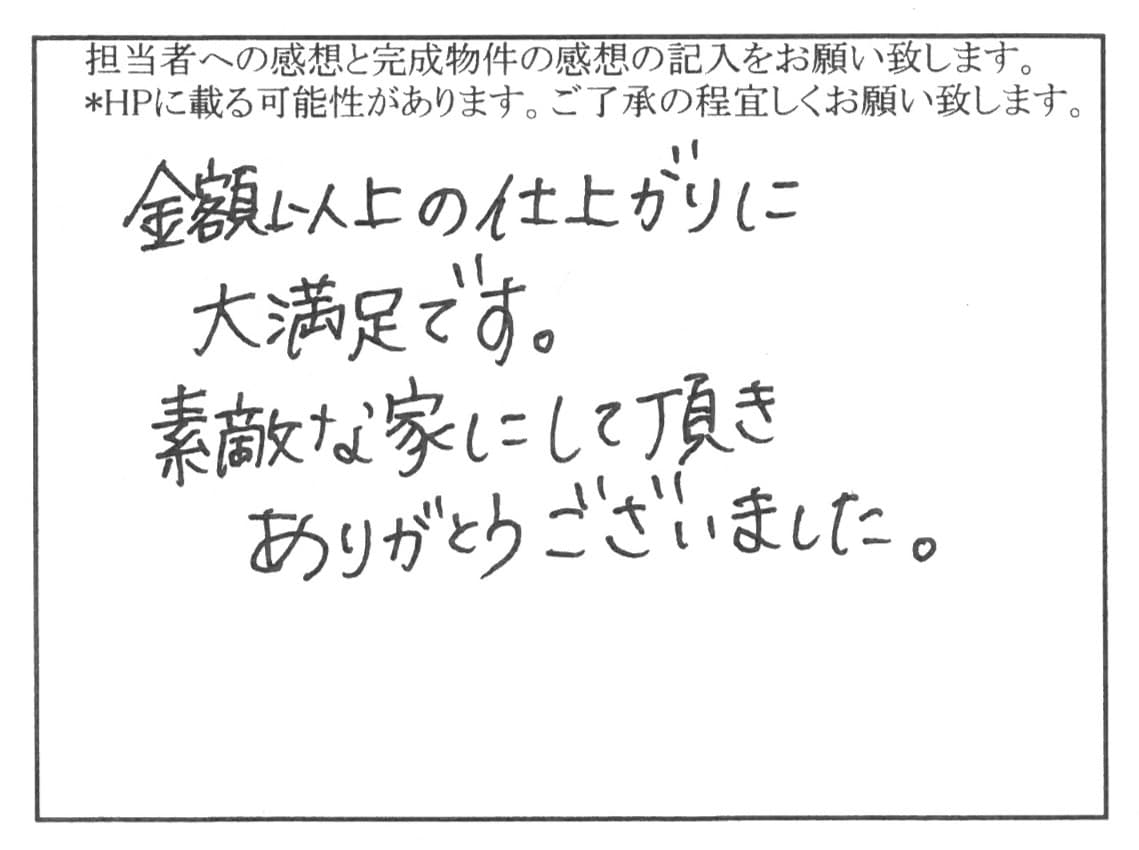 担当者への感想と完成物件の感想の記入をお願い致します。
*HPに載る可能性があります。ご了承の程宜しくお願い致します。
金額以上の仕上がりに
大満足です。
素敵な家にして頂き
ありがとうございました。